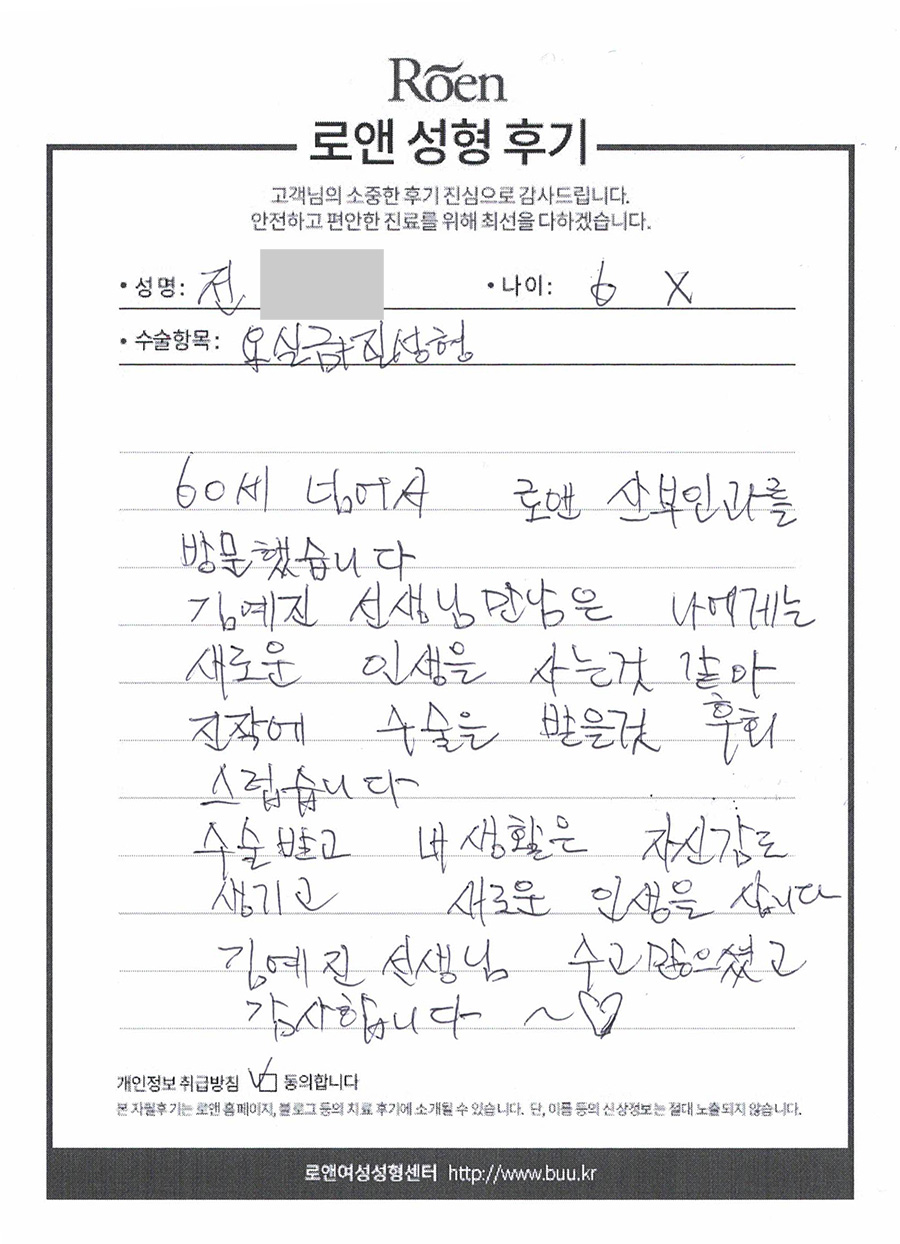 Rōen
로앤 성형 후기
고객님의 소중한 후기 진심으로 감사드립니다.
안전하고 편안한 진료를 위해 최선을 다하겠습니다.
• 성명: 전 • 나이: 6 X
• 수술항목: 요실금+질성형
60세 넘어서 로앤 산부인과를
방문했습니다
김예진 선생님만남은 나에게는
새로운 인생을 사는것 같아
진작에 수술을 받을걸 후회
스럽습니다
수술받고 내 생활은 자신감도
생기고 새로운 인생을 삽니다
김예진 선생님 수고많으셨고
감사합니다 ~♡
개인정보 취급방침 ☑ 동의합니다
본 자필후기는 로앤 홈페이지, 블로그 등의 치료 후기에 소개될 수 있습니다. 단, 이름 등의 신상정보는 절대 노출되지 않습니다.
로앤여성성형센터 http://www.buu.kr